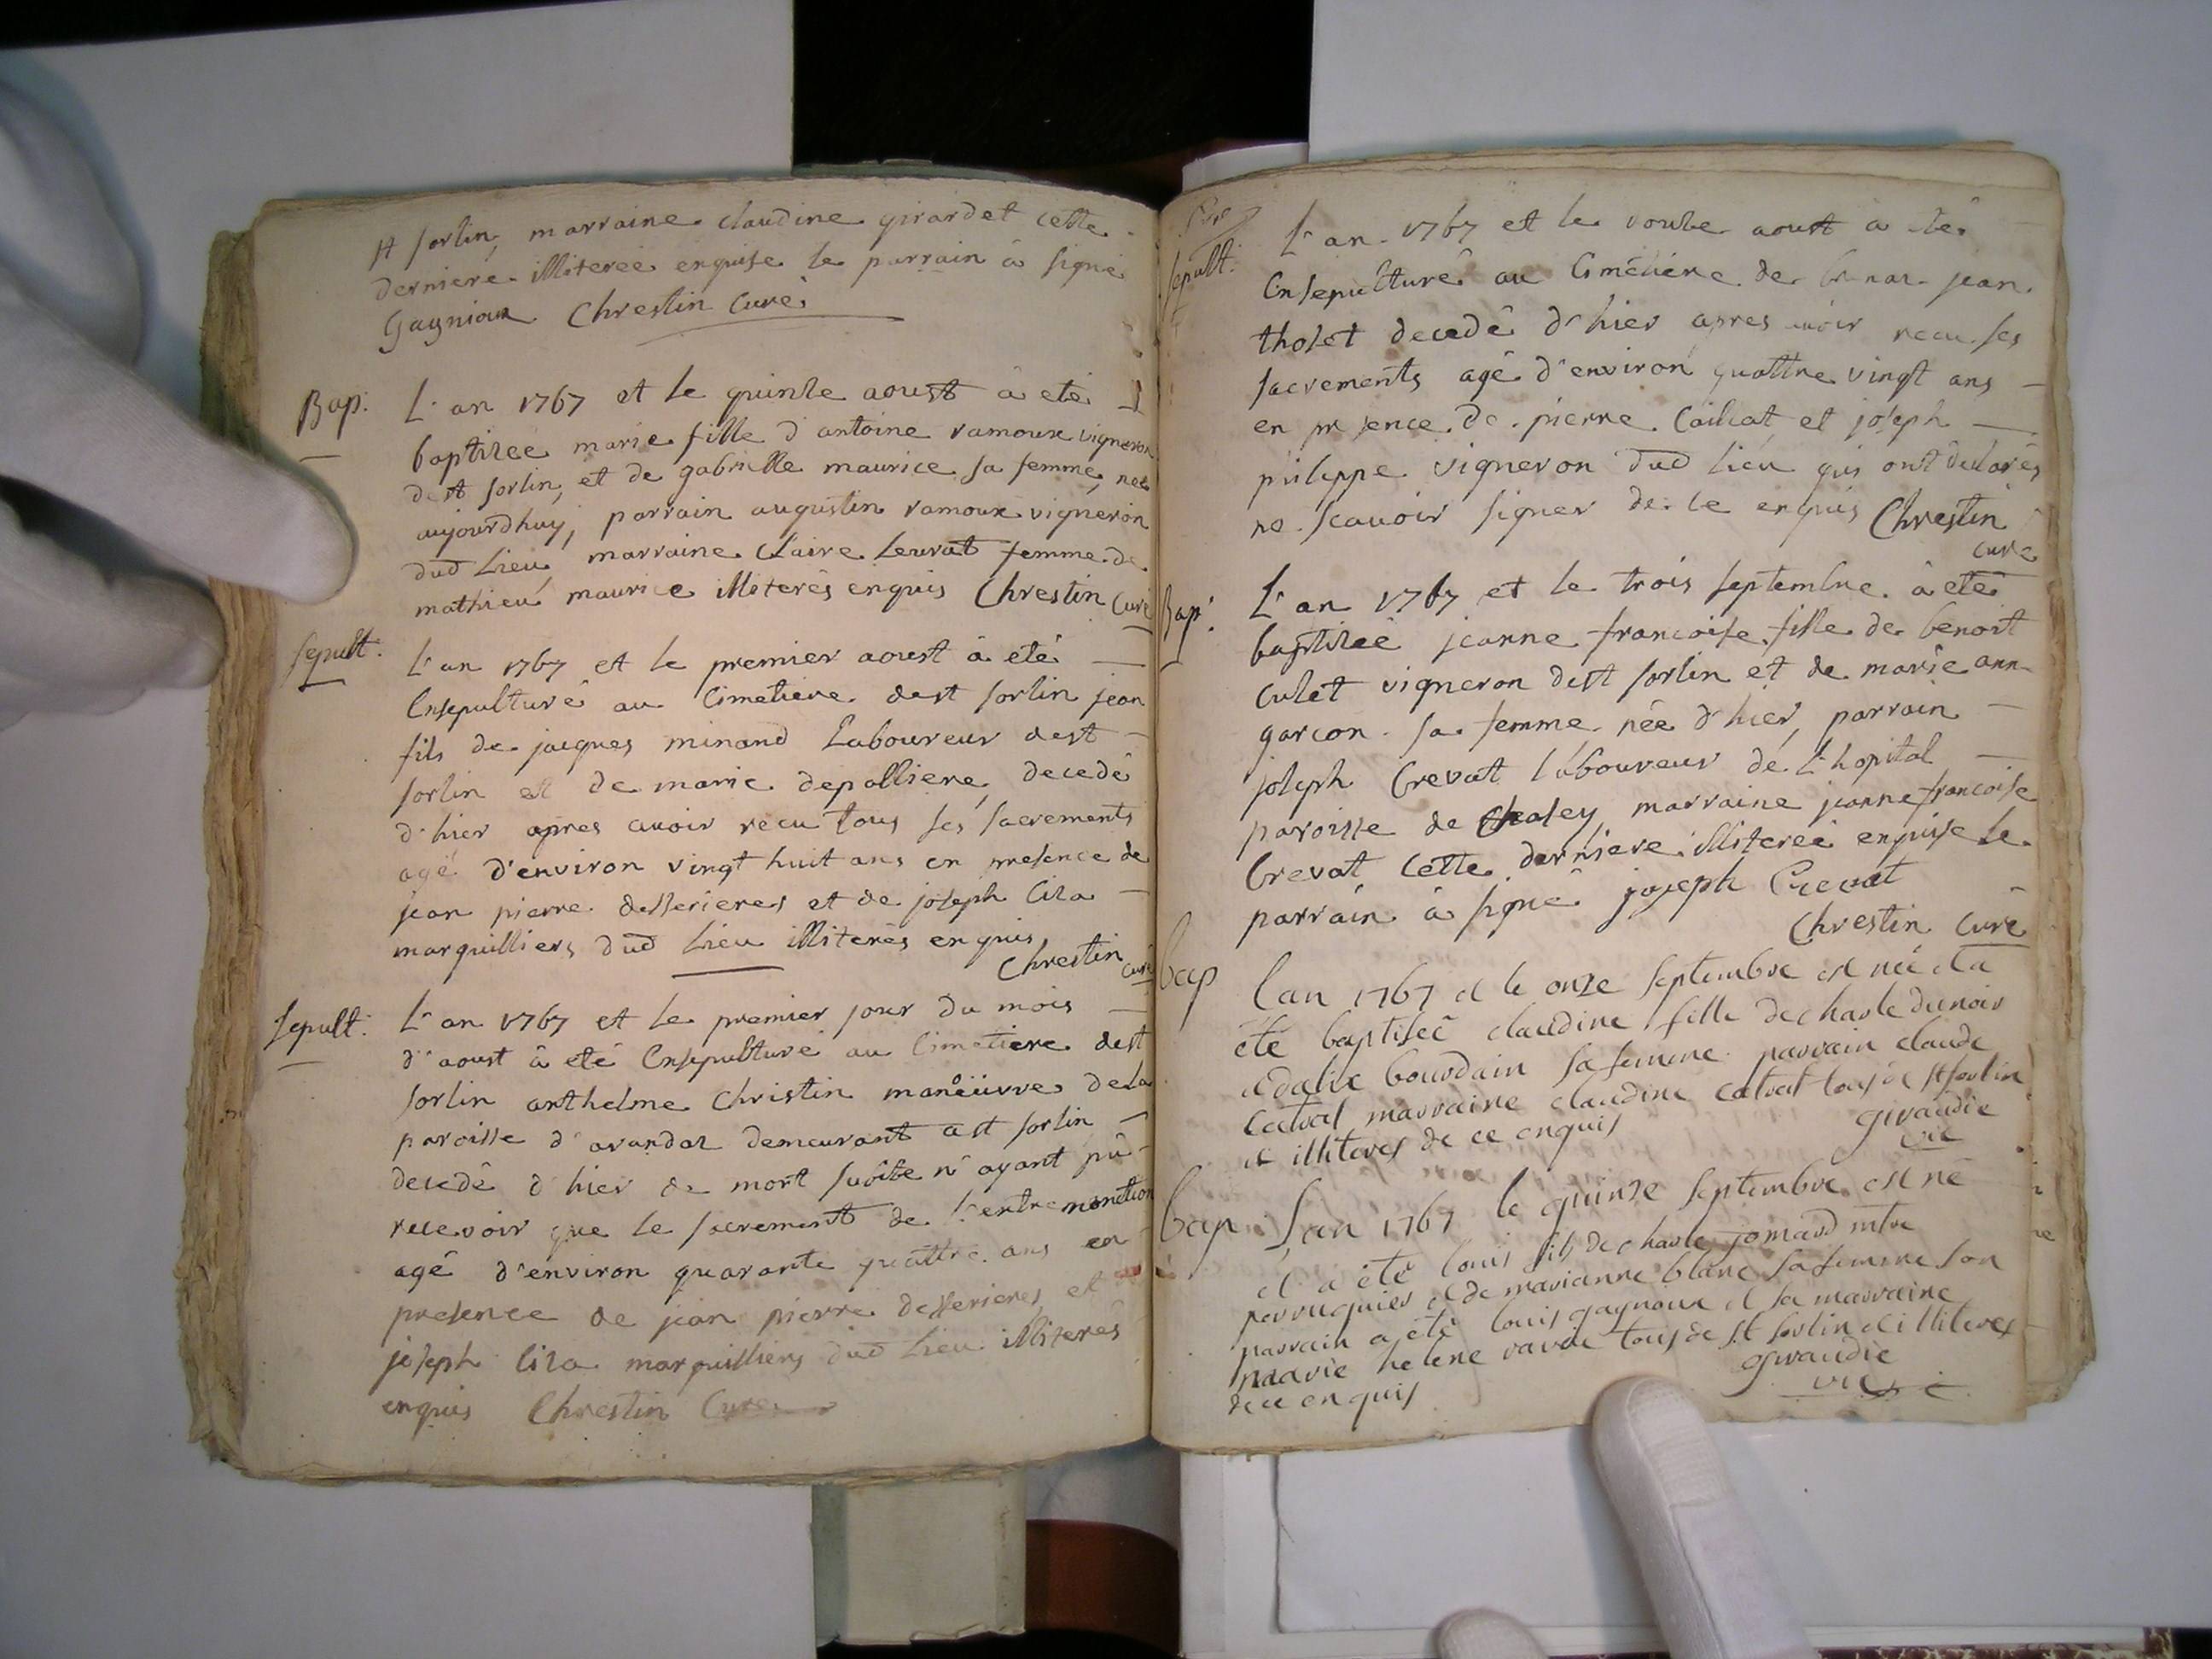 st sorlin, marraine claudine girardet cette
derniere illiterée enquise le parrain à signé
Gagnioux Chrestin Curé
Bap: L'an 1767 et le quinze aoust à eté
baptizée marie fille d'antoine ramoux vigneron
dest sorlin, et de gabrielle maurice sa femme, née
aujourdhuy, parrain augustin ramoux vigneron
dud Lieu, marraine Claire Leuvrat femme de
mathieu maurice illiterés enquis Chrestin Curé
sepult: L'an 1767 et le premier aoust à eté
Ensepulturé au Cimetiere dest sorlin jean
fils de jacques minand Laboureur dest
sorlin et de marie depolliere, decedé
d'hier apres avoir recu tous ses sacrements
agé d'environ vingt huit ans en presence de
jean pierre desserieres et de joseph Ciza
marquilliers dud Lieu illiterés enquis,
Chrestin curé
sepult: L'an 1767 et le premier jour du mois
d'aoust à eté Ensepulturé au Cimetiere dest
sorlin anthelme Christin manoeuvre dela
paroisse d'arandaz demeurant à st sorlin
decedé d'hier de mort subite n'ayant pû
recevoir que le sacrement de l'extremonction
agé d'environ quarante quattre ans en
presence de jean pierre desserieres et
joseph Ciza marquilliers dud Lieu illiterés
enquis Chrestin Curé
sepult: L'an 1767 et le aoust à eté
Ensepulturé au Cimetiere de jean
tholet decedé d'hier apres avoir recu ses
sacrements agé d'environ quattre vingt ans
en presence de pierre et joseph
philippe vigneron dud Lieu qui ont declarés
ne scavoir signer de ce enquis Chrestin
curé
Bap: L'an 1767 et le trois septembre à eté
baptizée jeanne francoise fille de benoit
culet vigneron dest sorlin et de marie ann
garcon sa femme née d'hier, parrain
joseph Crevat laboureur de L'hopital
paroisse de Chaley, marraine jeanne francoise
Crevat cette derniere illiterée enquise le
parrain à signé joseph Crevat
Chrestin Curé
bap l'an 1767 et le onze septembre est née et a
été baptisée claudine fille de charle dunoir
et dalix bourdain sa femme parrain claude
catval marraine claudine catval tous de st sorlin
et illiteres de ce enquis giraudie
vic
bap: l'an 1767 le quinze septembre est né
et a été louis fils de charle jomard mtre
perruquier et de marianne blanc sa femme son
parrain a été louis gagnoux et sa marraine
marie helene ravoux tous de st sorlin et illiteres
de ce enquis giraudie
vic